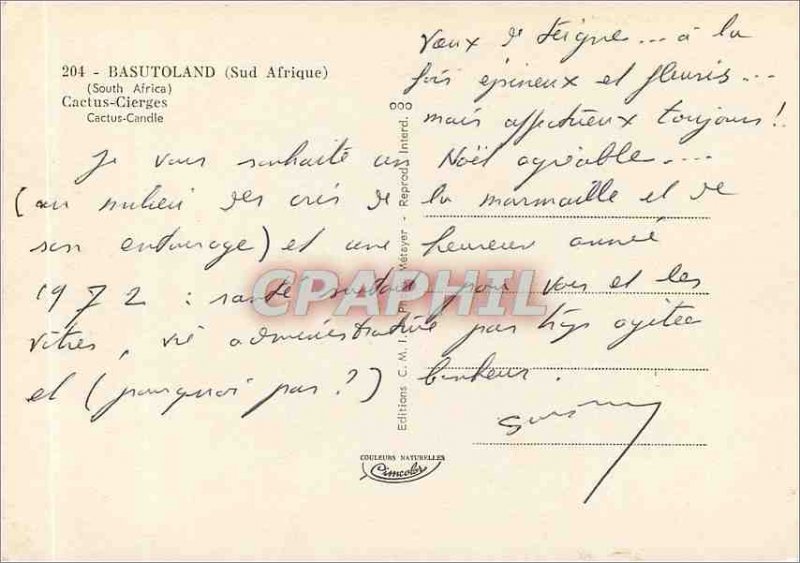 204 - BASUTOLAND (Sud Afrique)
(South Africa)
Cactus-Cierges
Cactus-Candle
Vœux de ... à la
fois épineux et fleuris...
mais affectueux toujours!
Je vous souhaite un Noël agréable....
(au milieu des cris de la marmaille et de
son entourage) et une heureuse année
1972 : santé surtout pour vous et les
vôtres, vie administrative pas trop agitée
et (pourquoi pas?) bonheur.
Editions C. M. I. Métayer - Reprod. Interd.
COULEURS NATURELLES
Cimcolor
CPAPHIL